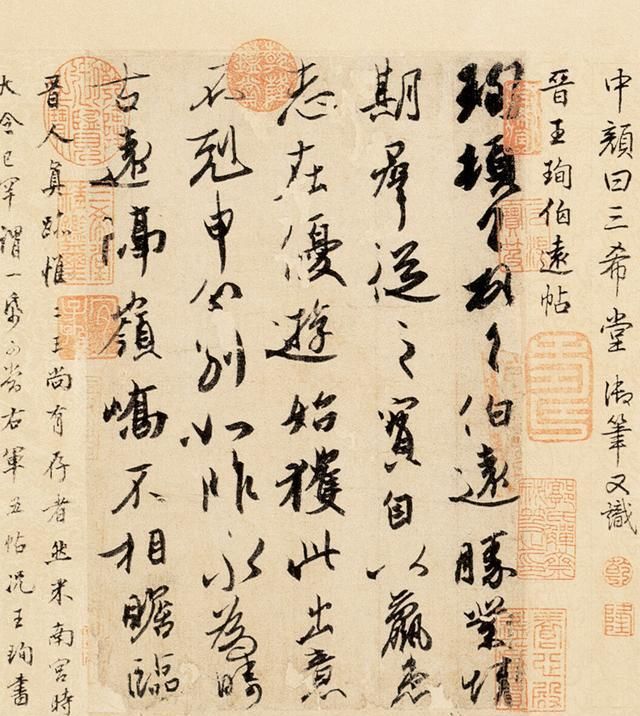 中顏曰三希堂御筆又識
晉王珣伯遠帖
珣頓首頓首伯遠勝業情
期羣從之寶自以羸患
志在優遊始獲此出意
不剋申分別如昨永為疇
古遠隔嶺嶠不相瞻臨
晉人真跡惟二王尚有存者然米南宮時
大令已罕謂一紙可當右軍五帖況王珣書